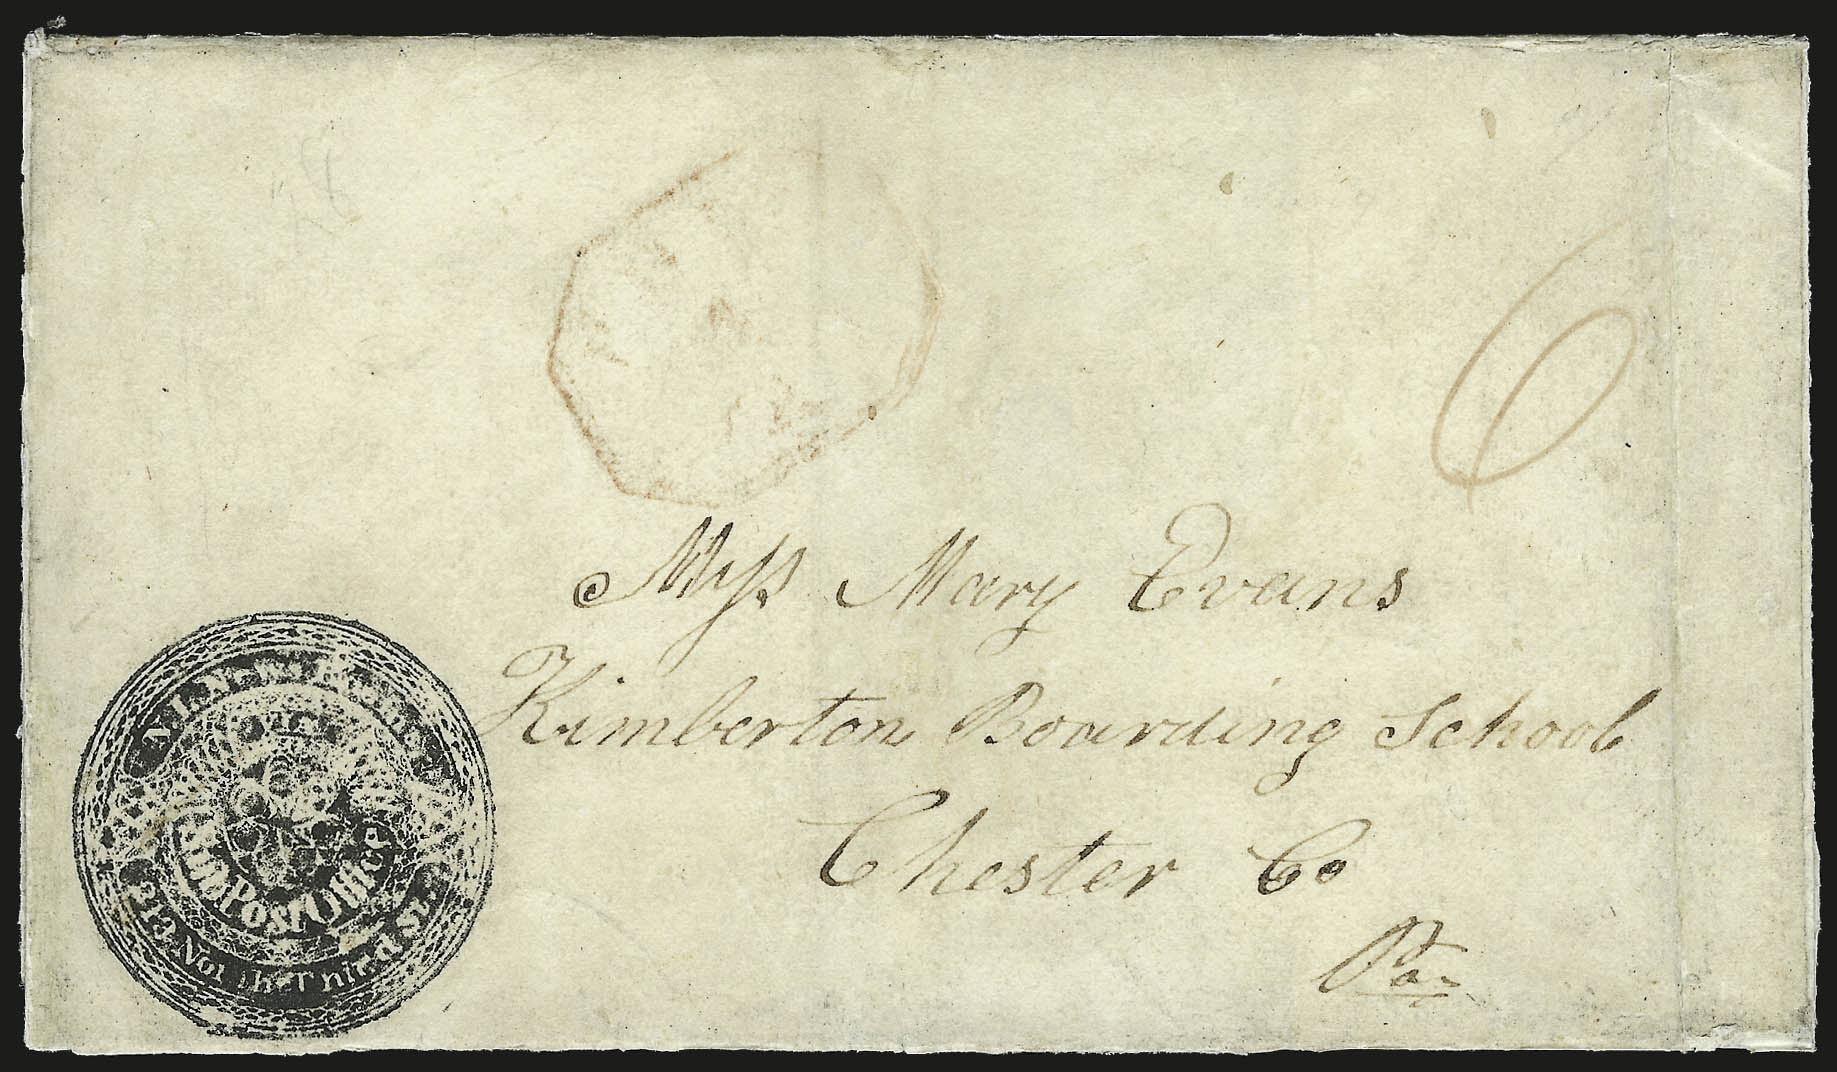 6
Miss Mary Evans
Kimberton Boarding School
Chester Co
Pa
Post Office
213 North Third St.